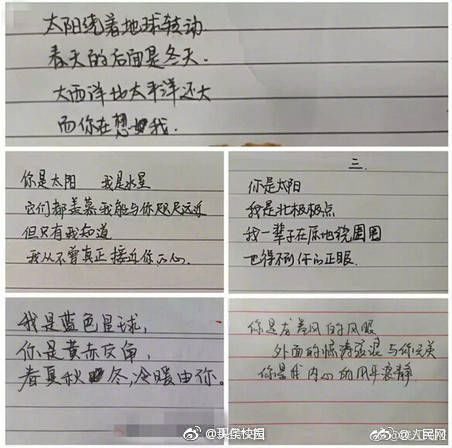 太阳绕着地球转动
春天的后面是冬天
大西洋比太平洋还大
而你在想我.
你是太阳 我是水星
它们都羡慕我能与你咫尺远近
但只有我知道
我从不曾真正接近你的心
三.
你是太阳
我是北极极点
我一辈子在原地绕圈圈
也得不到你的正眼
我是蓝色星球,
你是黄赤交角,
春夏秋冬,冷暖由你.
你是龙卷风的风眼
外面的惊涛骇浪与你无关
你是我内心的风平浪静
@头条校园
@人民网